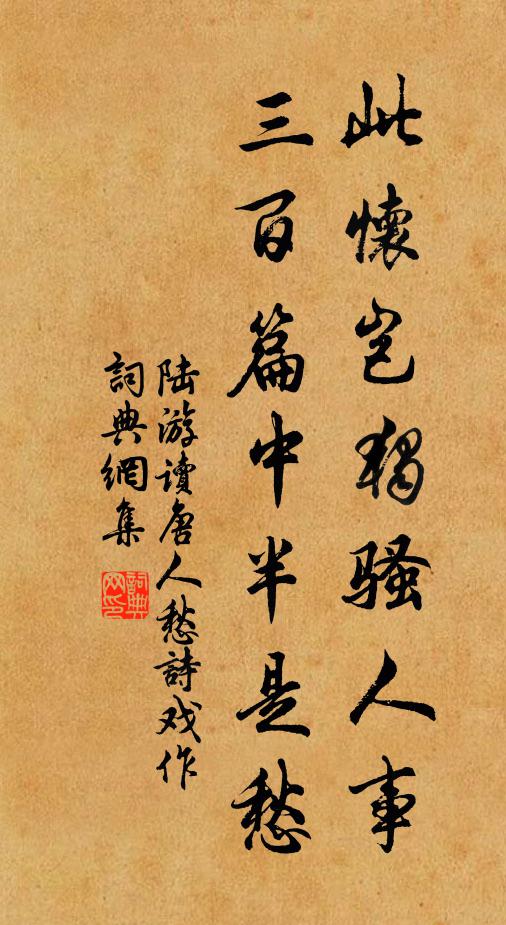 此懷豈獨騷人事
三百篇中半是愁
陆游讀唐人愁詩戏作
詞典網集
詞典网印